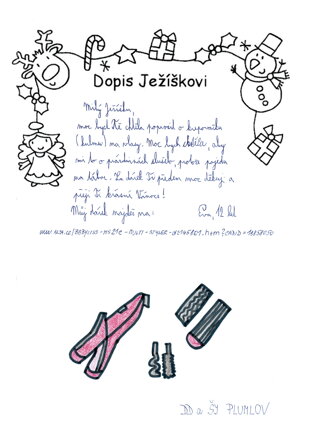 Dopis Ježíškovi
Milý Ježíšku,
moc bych Tě chtěla poprosit o
(kulmu) na vlasy. Moc bych chtěla, aby
mi to o prázdninách sloužilo, protože pojedu
na tábor. Za dárek Ti předem moc děkuji a
přeji Ti krásné Vánoce!
Můj dárek najdeš na: Eva, 12 let
DD a ŠJ PLUMLOV